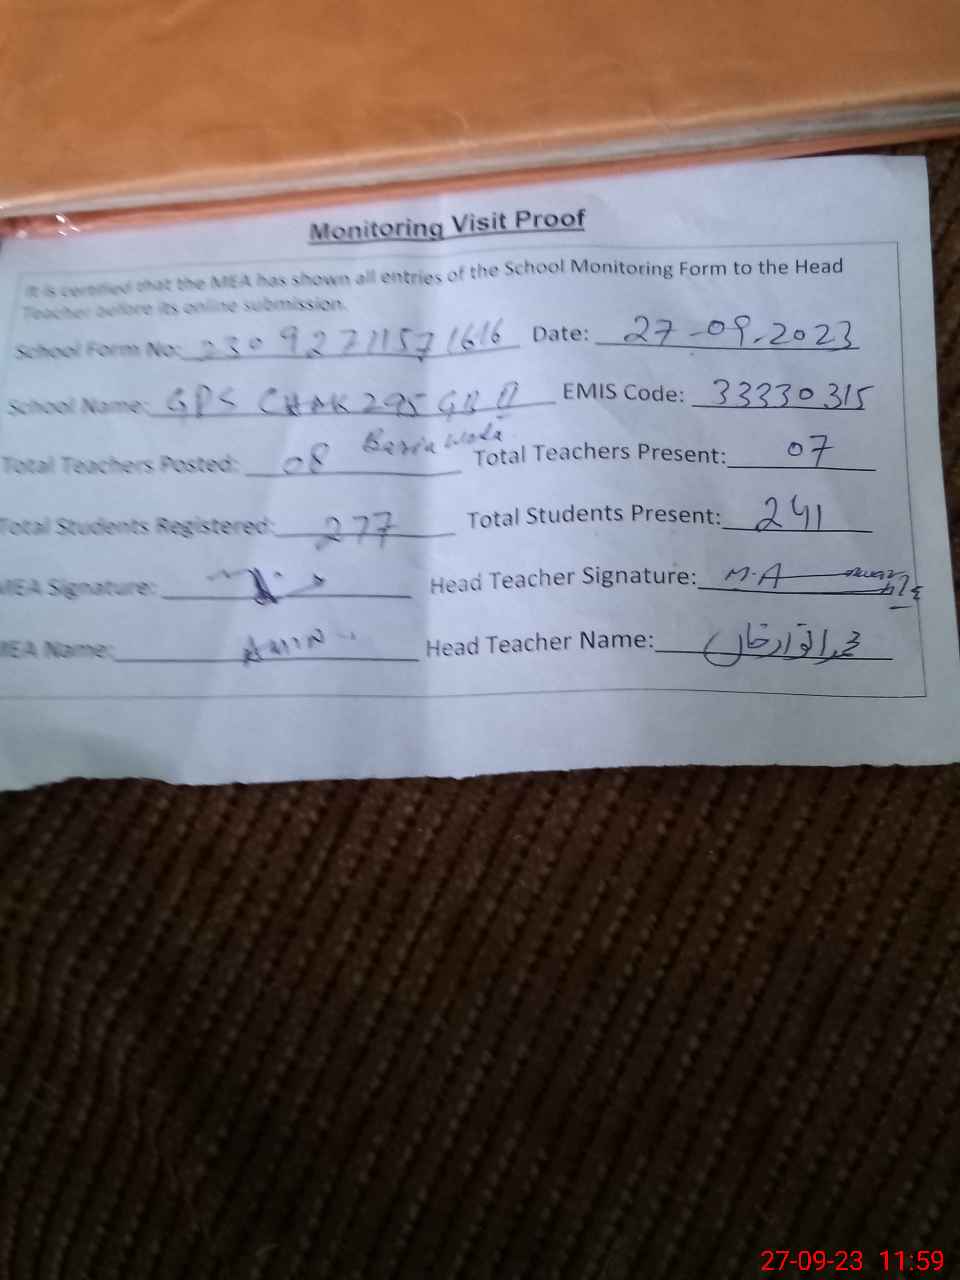 Monitoring Visit Proof
It is certified that the MEA has shown all entries of the School Monitoring Form to the Head
Teacher before its online submission.
School Form No: 23092711571616 Date: 27-09-2023
School Name: GPS CHAK 295 GB EMIS Code: 33330315
Total Teachers Posted: 08 Total Teachers Present: 07
Total Students Registered: 277 Total Students Present: 241
MEA Signature: Head Teacher Signature: M.A
MEA Name: Head Teacher Name:
27-09-23 11:59